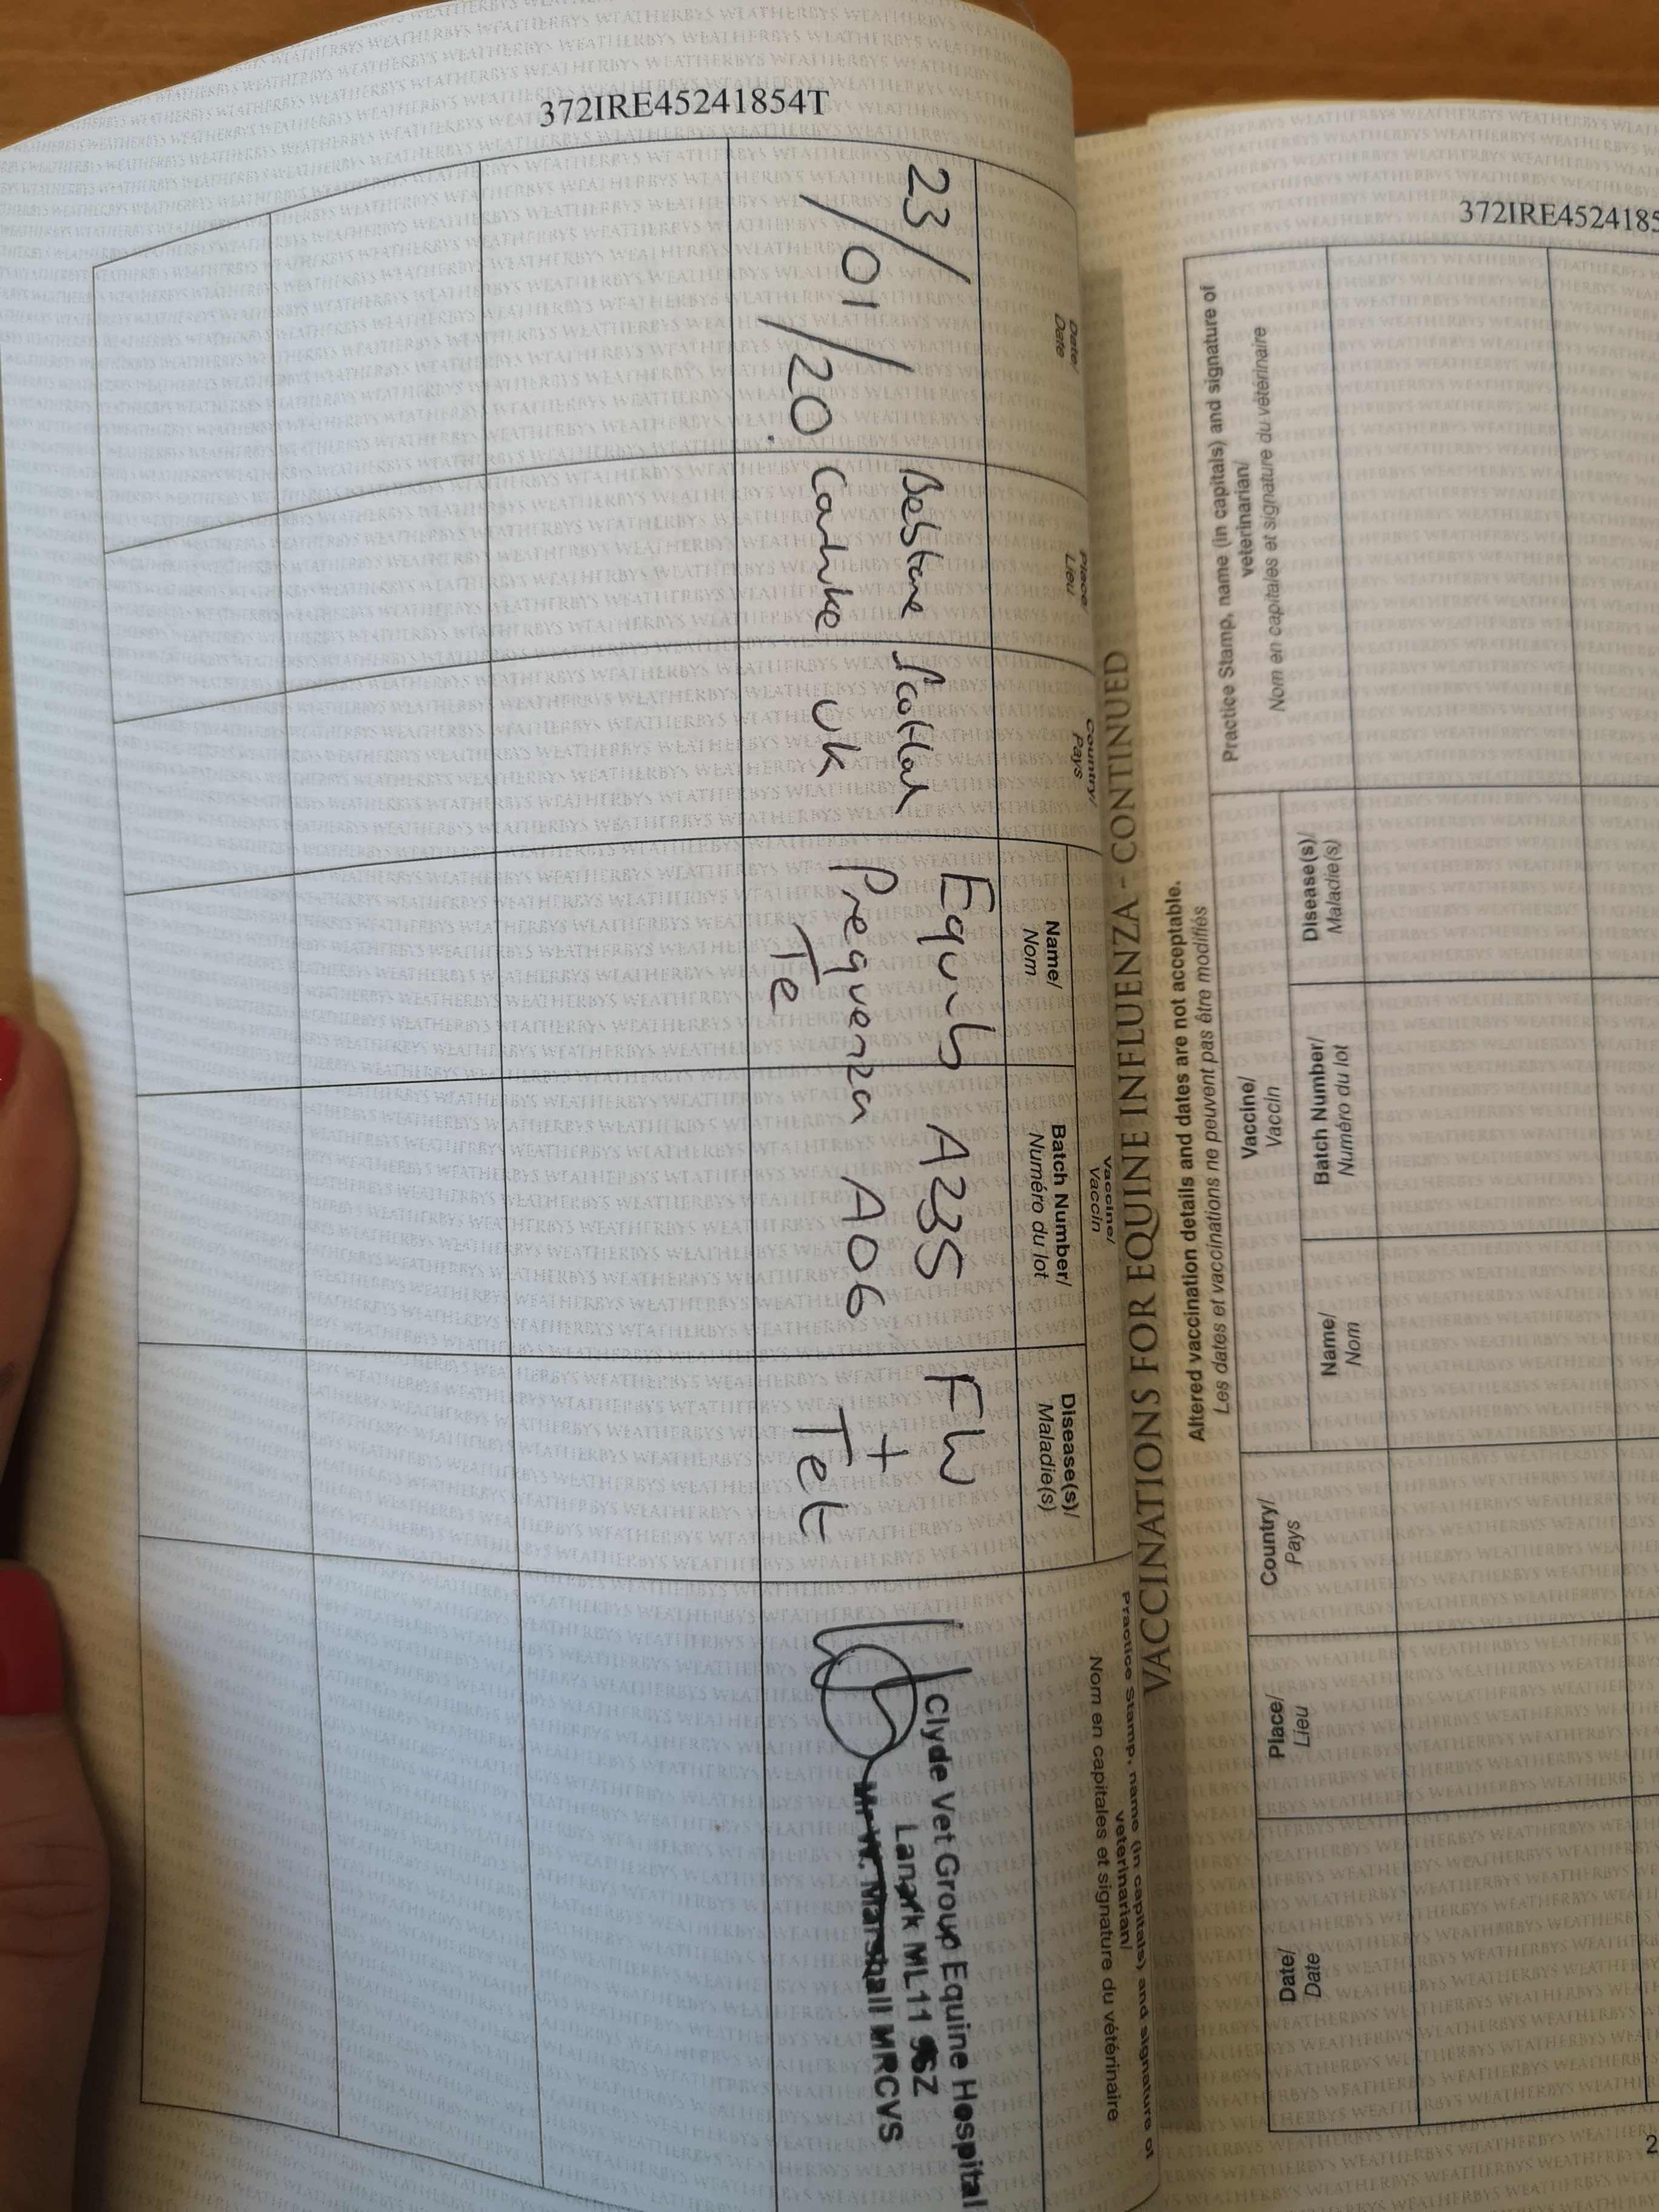 372IRE45241854T
VACCINATIONS FOR EQUINE INFLUENZA - CONTINUED
Date/
Date
Place/
Lieu
Country/
Pays
Vaccine/
Vaccin
Name/
Nom
Batch Number/
Numéro du lot
Disease(s)/
Maladie(s)
Practice Stamp, name (in capitals) and signature of
veterinarian/
Nom en capitales et signature du vétérinaire
23/01/20.
Carluke
UK
Equip A235 Flu
Prequenza A06 +
Te
Tet
Clyde Vet Group Equine Hospital
Lanark ML11
Marshall MRCVS
372IRE4524185
Altered vaccination details and dates are not acceptable.
Les dates et vaccinations ne peuvent pas être modifiés
Date/
Date
Place/
Lieu
Country/
Pays
Vaccine/
Vaccin
Name/
Nom
Batch Number/
Numéro du lot
Disease(s)/
Maladie(s)
Practice Stamp, name (in capitals) and signature of
veterinarian/
Nom en capitales et signature du vétérinaire
2
WEATHERBYS WEATHERBYS WEATHERBYS